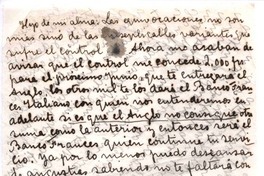 Hijo de mi alma: Las equivocaciones no son
más sino de las variantes que
sufre el control. Ahora me acaban de
avisar que el control me concede 2,000 fr.
para el próximo Junio, que te entregará el
Anglo. Los otro mil te los dará el Banco Fran-
ces Italiano con quien nos entenderemos en
adelante si es que el Anglo no consigue otra
suma como la anterior y entonces será el
Banco Frances quien continue tu servi-
cio. Ya por lo menos puedo descansar
de angustias sabiendo no te faltará con